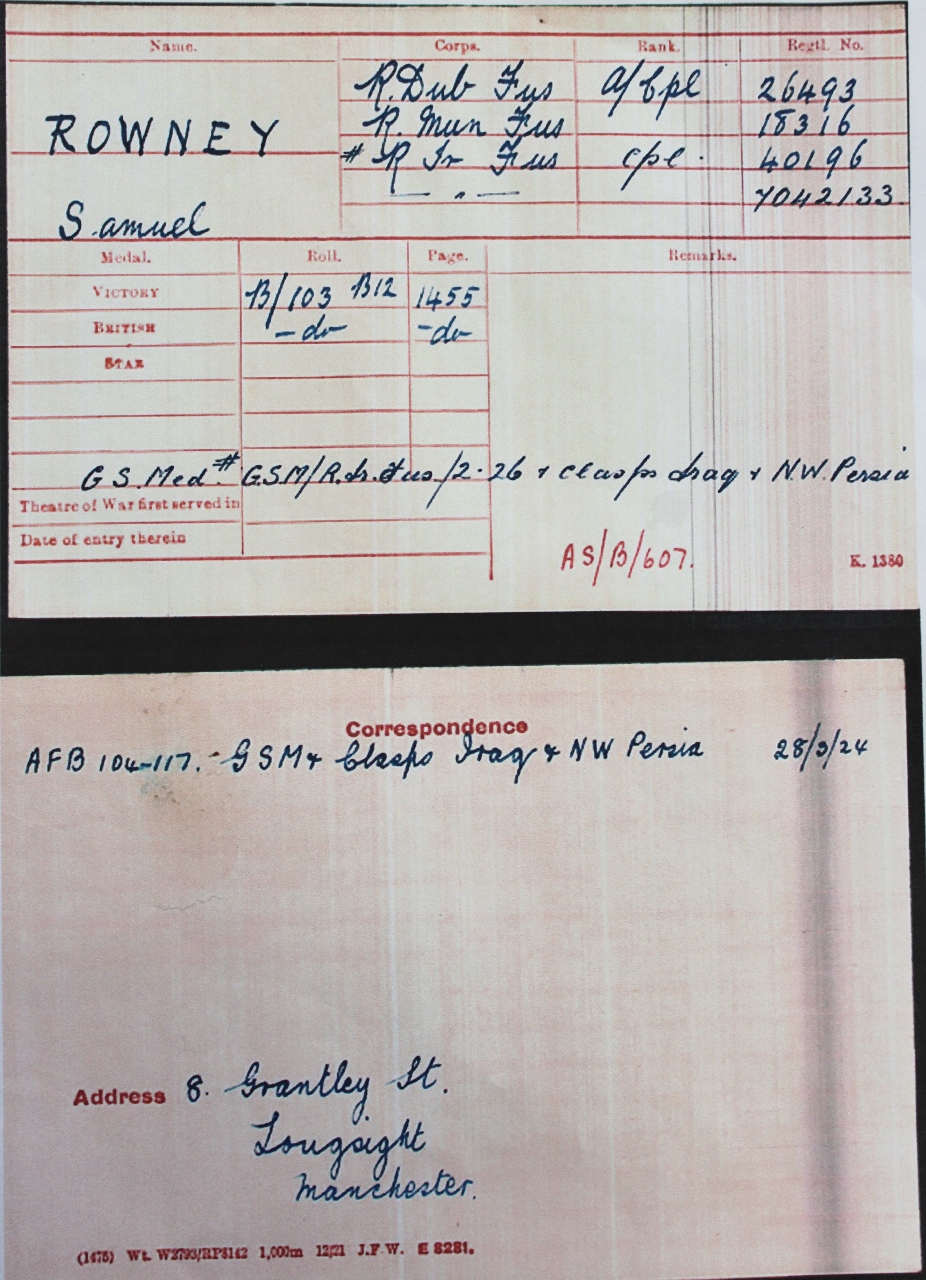 Name. Corps. Rank. Regtl. No.
R. Dub Fus A/Cpl 26493
ROWNEY R. Mun Fus 18316
# R Ir Fus Cpl. 40196
— " — 7042133.
Samuel
Medal. Roll. Page. Remarks.
VICTORY B/103 B12 1455
BRITISH -do- -do-
STAR
G.S. Med.# G.S.M/R.Ir.Fus/2.26 + clasps Iraq + N.W. Persia
Theatre of War first served in
Date of entry therein
AS/B/607.
K. 1380
Correspondence
AFB 104-117. - GSM + Clasps Iraq + NW Persia 28/3/24
Address 8. Grantley St.
Longsight
Manchester.
(1475) Wt. W2793/RP8142 1,000m 12/21 J.F.W. E 8281.